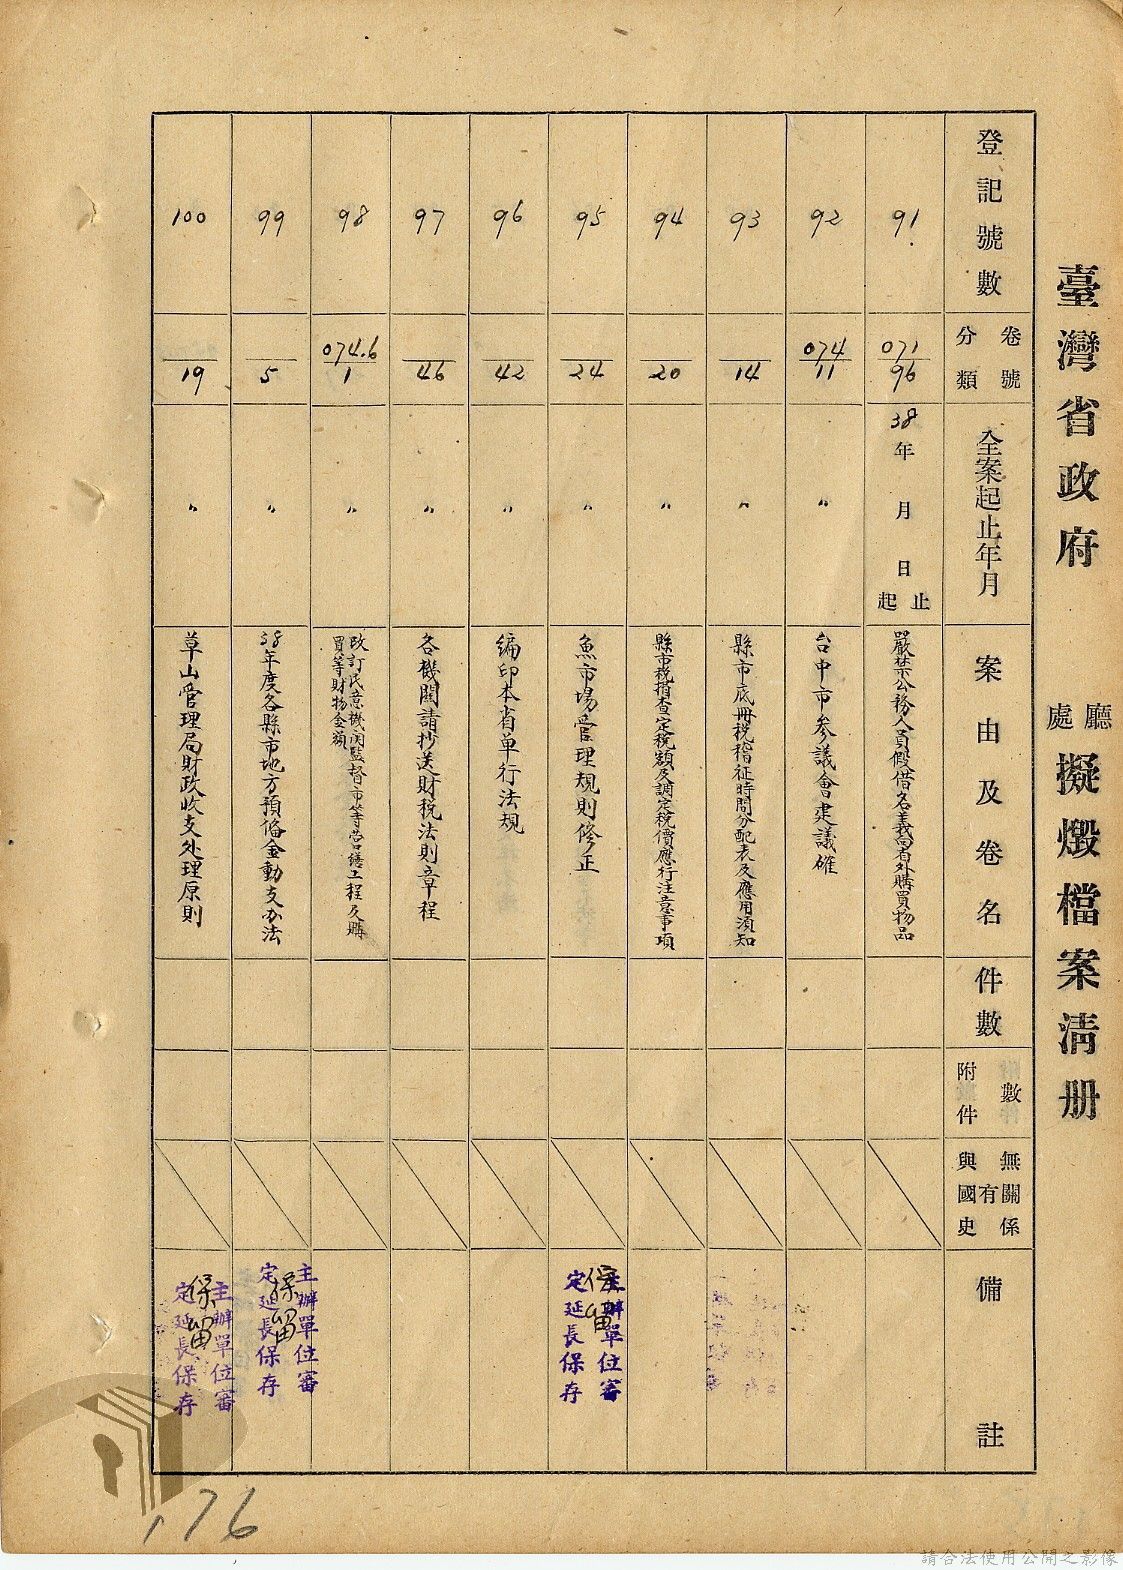 臺灣省政府 廳處擬燬檔案清册
登記號數
分類卷號
全案起止年月
案由及卷名
件數
附件數
與國史有無關係
備註
91
071/96
38年 月 日 起止
嚴禁公務人員假借名義向省外購買物品
92
074/11
〃
台中市參議會建議確
93
14
〃
縣市底冊稅稽征時間分配表及應用須知
94
20
〃
縣市稅稽查定稅額及調定稅價應行注意事項
95
24
〃
魚市場管理規則修正
主辦單位審
定延長保存
保留
96
42
〃
編印本省單行法規
97
46
〃
各機關請抄送財稅法則章程
98
074.6/1
〃
改訂民意機関監督市等营繕工程及購
買等財物金額
99
5
〃
38年度各縣市地方預備金動支办法
主辦單位審
定延長保存
保留
100
19
〃
草山管理局財政收支处理原則
主辦單位審
定延長保存
保留
176
請合法使用公開之影像